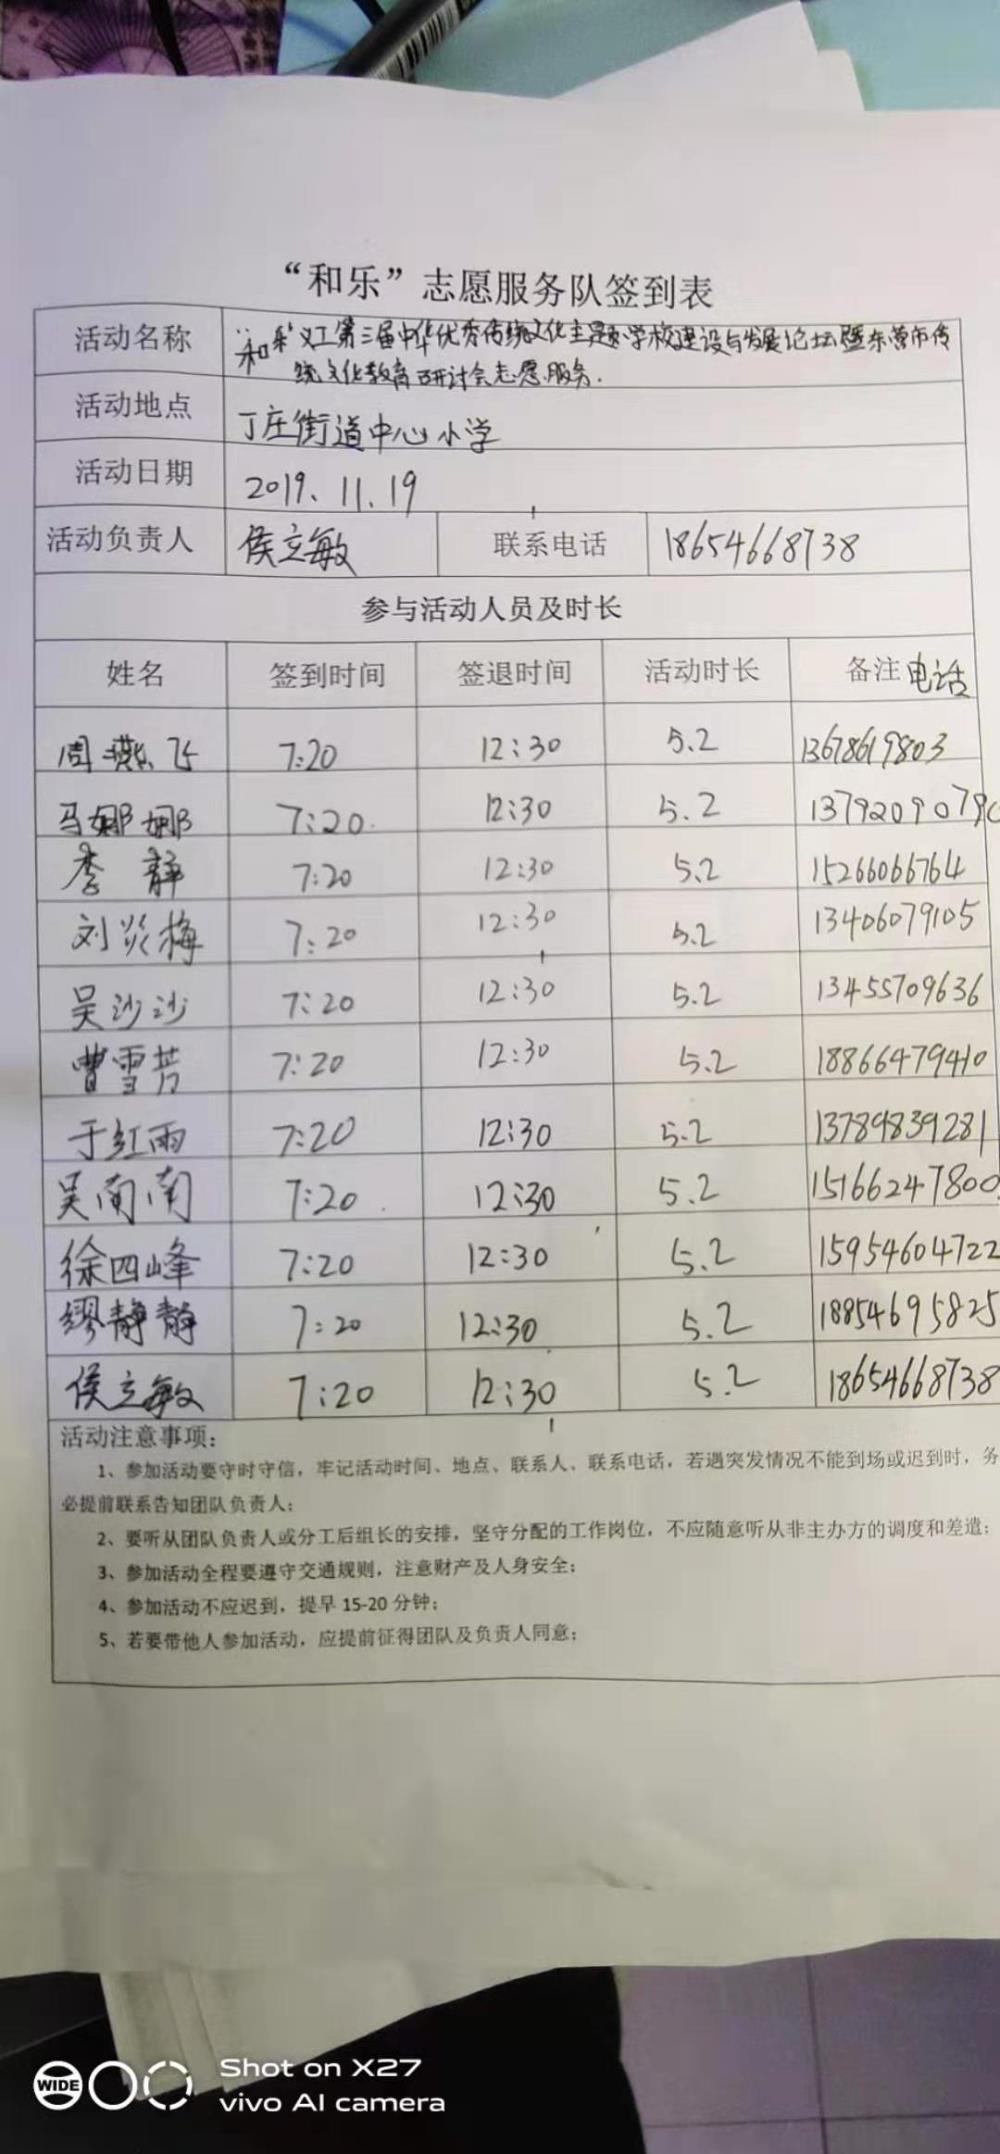 “和乐”志愿服务队签到表
活动名称 “和乐”义工第三届中华优秀传统文化主题学校建设与发展论坛暨东营市传
统文化教育研讨会志愿服务.
活动地点 丁庄街道中心小学
活动日期 2019.11.19
活动负责人 侯立敏 联系电话 18654668738
参与活动人员及时长
姓名 签到时间 签退时间 活动时长 备注电话
周燕飞 7:20 12:30 5.2 13678619803
马娜娜 7:20 12:30 5.2 13792090790
李静 7:20 12:30 5.2 15266066764
刘炎梅 7:20 12:30 5.2 13406079105
吴沙沙 7:20 12:30 5.2 13455709636
曹雪芳 7:20 12:30 5.2 18866479410
于红雨 7:20 12:30 5.2 13789839281
吴南南 7:20 12:30 5.2 15166247800
徐四峰 7:20 12:30 5.2 15954604722
缪静静 7:20 12:30 5.2 18854695825
侯立敏 7:20 12:30 5.2 18654668738
活动注意事项：
1、参加活动要守时守信，牢记活动时间、地点、联系人、联系电话，若遇突发情况不能到场或迟到时，务
必提前联系告知团队负责人；
2、要听从团队负责人或分工后组长的安排，坚守分配的工作岗位，不应随意听从非主办方的调度和差遣；
3、参加活动全程要遵守交通规则，注意财产及人身安全；
4、参加活动不应迟到，提早 15-20 分钟；
5、若要带他人参加活动，应提前征得团队及负责人同意；
WIDE
Shot on X27
vivo AI camera